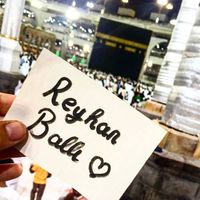 Reyhan
Ballı ♡